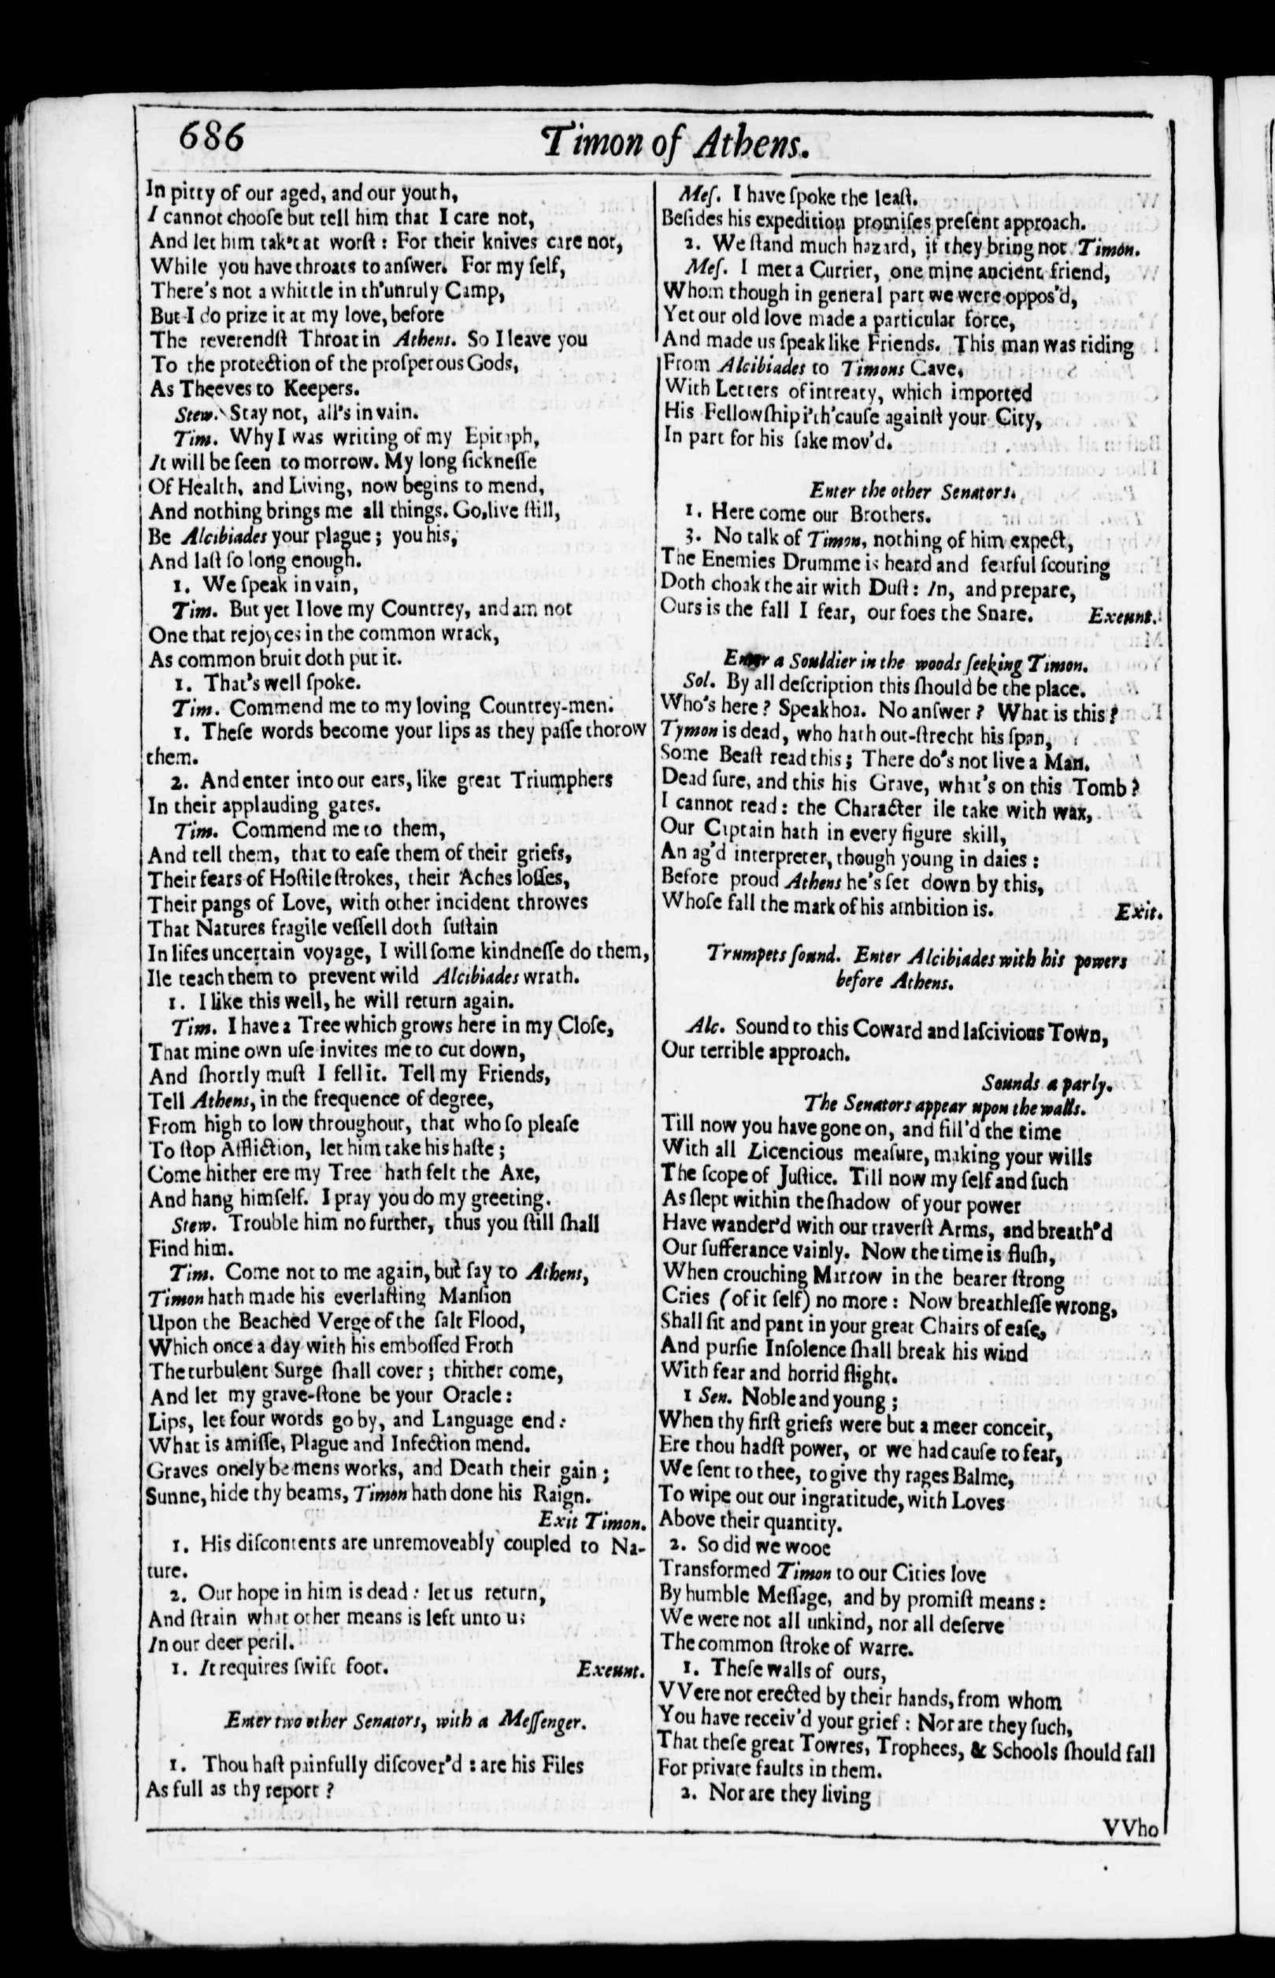 686
Timon of Athens.
In pitty of our aged, and our youth,
I cannot choose but tell him that I care not,
And let him tak't at worſt: For their knives care not,
While you have throats to anſwer. For my ſelf,
There's not a whittle in th'unruly Camp,
But I do prize it at my love, before
The reverendſt Throat in Athens. So I leave you
To the protection of the proſperous Gods,
As Theeves to Keepers.
Stew. Stay not, all's in vain.
Tim. Why I was writing of my Epitaph,
It will be ſeen to morrow. My long ſickneſſe
Of Health, and Living, now begins to mend,
And nothing brings me all things. Go, live ſtill,
Be Alcibiades your plague; you his,
And laſt ſo long enough.
1. We ſpeak in vain,
Tim. But yet I love my Countrey, and am not
One that rejoyces in the common wrack,
As common bruit doth put it.
1. That's well ſpoke.
Tim. Commend me to my loving Countrey-men.
1. Theſe words become your lips as they paſſe thorow
them.
2. And enter into our ears, like great Triumphers
In their applauding gates.
Tim. Commend me to them,
And tell them, that to eaſe them of their griefs,
Their fears of Hoſtile ſtrokes, their Aches loſſes,
Their pangs of Love, with other incident throwes
That Natures fragile veſſell doth ſuſtain
In lifes uncertain voyage, I will ſome kindneſſe do them,
Ile teach them to prevent wild Alcibiades wrath.
1. I like this well, he will return again.
Tim. I have a Tree which grows here in my Cloſe,
That mine own uſe invites me to cut down,
And ſhortly muſt I fell it. Tell my Friends,
Tell Athens, in the frequence of degree,
From high to low throughout, that who ſo pleaſe
To ſtop Affliction, let him take his haſte;
Come hither ere my Tree hath felt the Axe,
And hang himſelf. I pray you do my greeting.
Stew. Trouble him no further, thus you ſtill ſhall
Find him.
Tim. Come not to me again, but ſay to Athens,
Timon hath made his everlaſting Manſion
Upon the Beached Verge of the ſalt Flood,
Which once a day with his emboſſed Froth
The turbulent Surge ſhall cover; thither come,
And let my grave-ſtone be your Oracle:
Lips, let four words go by, and Language end:
What is amiſſe, Plague and Infection mend.
Graves onely be mens works, and Death their gain;
Sunne, hide thy beams, Timon hath done his Raign.
Exit Timon.
1. His diſcontents are unremoveably coupled to Na-
ture.
2. Our hope in him is dead: let us return,
And ſtrain what other means is left unto us
In our deer peril.
1. It requires ſwift foot. Exeunt.
Enter two other Senators, with a Meſſenger.
1. Thou haſt painfully diſcover'd: are his Files
As full as thy report?
Meſ. I have ſpoke the leaſt.
Beſides his expedition promiſes preſent approach.
2. We ſtand much hazard, if they bring not Timon.
Meſ. I met a Currier, one mine ancient friend,
Whom though in general part we were oppos'd,
Yet our old love made a particular force,
And made us ſpeak like Friends. This man was riding
From Alcibiades to Timons Cave,
With Letters of intreaty, which imported
His Fellowſhip i'th'cauſe againſt your City,
In part for his ſake mov'd.
Enter the other Senators.
1. Here come our Brothers.
3. No talk of Timon, nothing of him expect,
The Enemies Drumme is heard and fearful ſcouring
Doth choak the air with Duſt: In, and prepare,
Ours is the fall I fear, our foes the Snare. Exeunt.
Enter a Souldier in the woods ſeeking Timon.
Sol. By all deſcription this ſhould be the place.
Who's here? Speak hoa. No anſwer? What is this?
Tymon is dead, who hath out-ſtrecht his ſpan,
Some Beaſt read this; There do's not live a Man.
Dead ſure, and this his Grave, what's on this Tomb?
I cannot read: the Character ile take with wax,
Our Captain hath in every figure skill,
An ag'd interpreter, though young in daies:
Before proud Athens he's ſet down by this,
Whoſe fall the mark of his ambition is. Exit.
Trumpets ſound. Enter Alcibiades with his powers
before Athens.
Alc. Sound to this Coward and laſcivious Town,
Our terrible approach.
Sounds a parly.
The Senators appear upon the walls.
Till now you have gone on, and fill'd the time
With all Licencious meaſure, making your wills
The ſcope of Juſtice. Till now my ſelf and ſuch
As ſlept within the ſhadow of your power
Have wander'd with our traverſt Arms, and breath'd
Our ſufferance vainly. Now the time is fluſh,
When crouching Marrow in the bearer ſtrong
Cries (of it ſelf) no more: Now breathleſſe wrong,
Shall ſit and pant in your great Chairs of eaſe,
And purſie Inſolence ſhall break his wind
With fear and horrid flight.
1 Sen. Noble and young;
When thy firſt griefs were but a meer conceit,
Ere thou hadſt power, or we had cauſe to fear,
We ſent to thee, to give thy rages Balme,
To wipe out our ingratitude, with Loves
Above their quantity.
2. So did we wooe
Transformed Timon to our Cities love
By humble Meſſage, and by promiſt means:
We were not all unkind, nor all deſerve
The common ſtroke of warre.
1. Theſe walls of ours,
VVere not erected by their hands, from whom
You have receiv'd your grief: Nor are they ſuch,
That theſe great Towres, Trophees, & Schools ſhould fall
For private faults in them.
2. Nor are they living
VVho